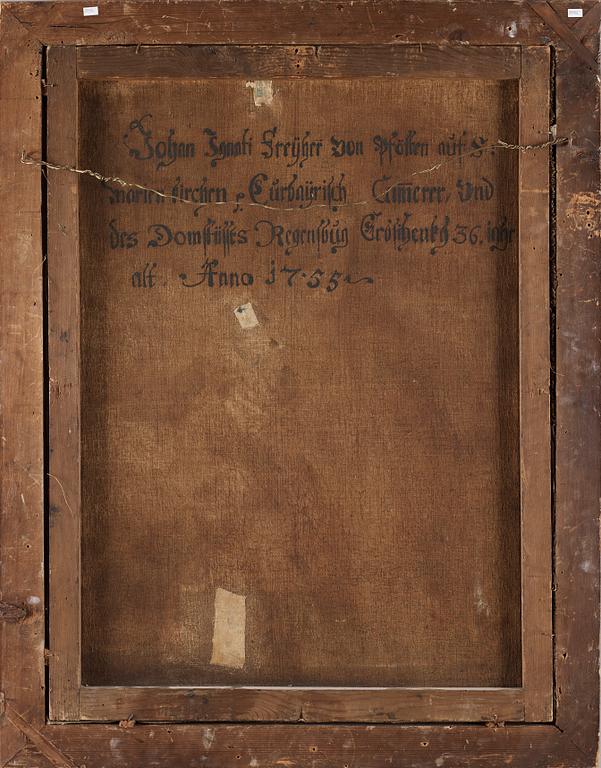 Johan Ignati Freÿher von Pfötten auf S:
Marien Kirchen p Curbaÿrisch Cam̄erer, Und
des Domstüffts Regensbug Erbschenkh 36. iahr
alt. Anno 1755